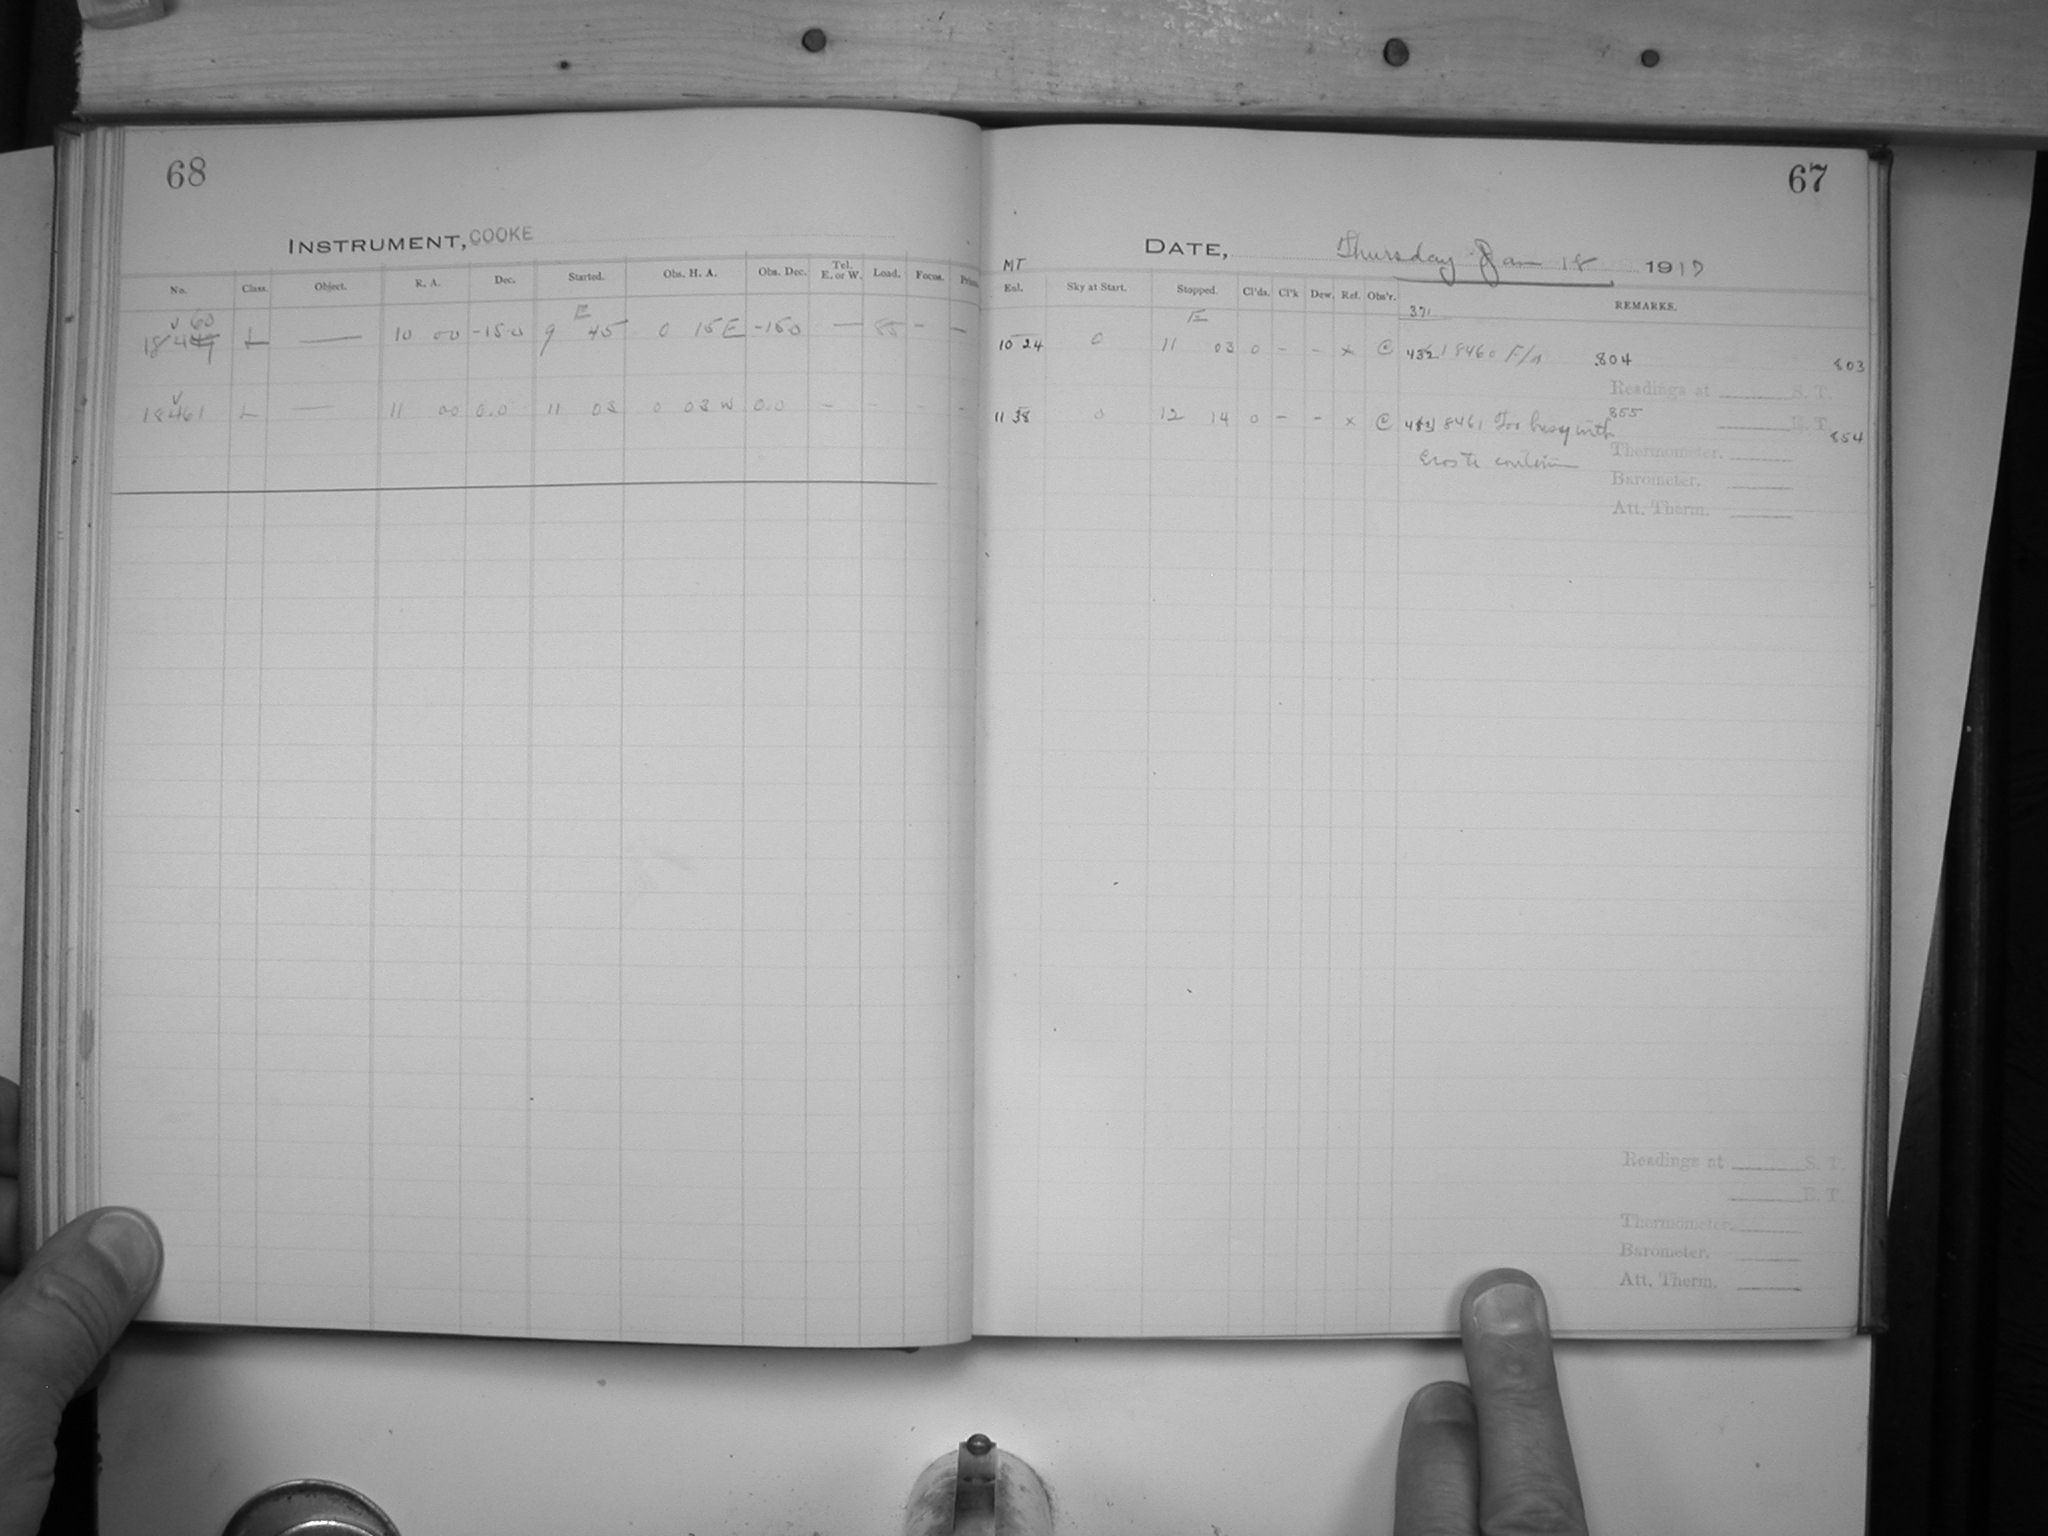 68
INSTRUMENT, COOKE
No. Class. Object. R. A. Dec. Started. Obs. H. A. Obs. Dec. Tel. E. or W. Load. Focus.
60
18 L — 10 00 -15.0 E 9 45 0 15 E -15.0 — — —
18461 L — 11 00 0.0 11 03 0 03 W 0.0 - - - -
67
DATE, Thursday Jan 18 1917
MT
Exl. Sky at Start. Stopped. Cl'ds. Cl'k Dew. Ref. Obs'r. REMARKS.
371
10 24 0 E 11 03 0 - - x C 432 18460 F/n 804 803
Readings at S. T.
11 38 0 12 14 0 - - x C 18461 Too busy with 855 E. T. 854
Eros to continue
Thermometer.
Barometer.
Att. Therm.
Readings at S. T.
E. T.
Thermometer.
Barometer.
Att. Therm.